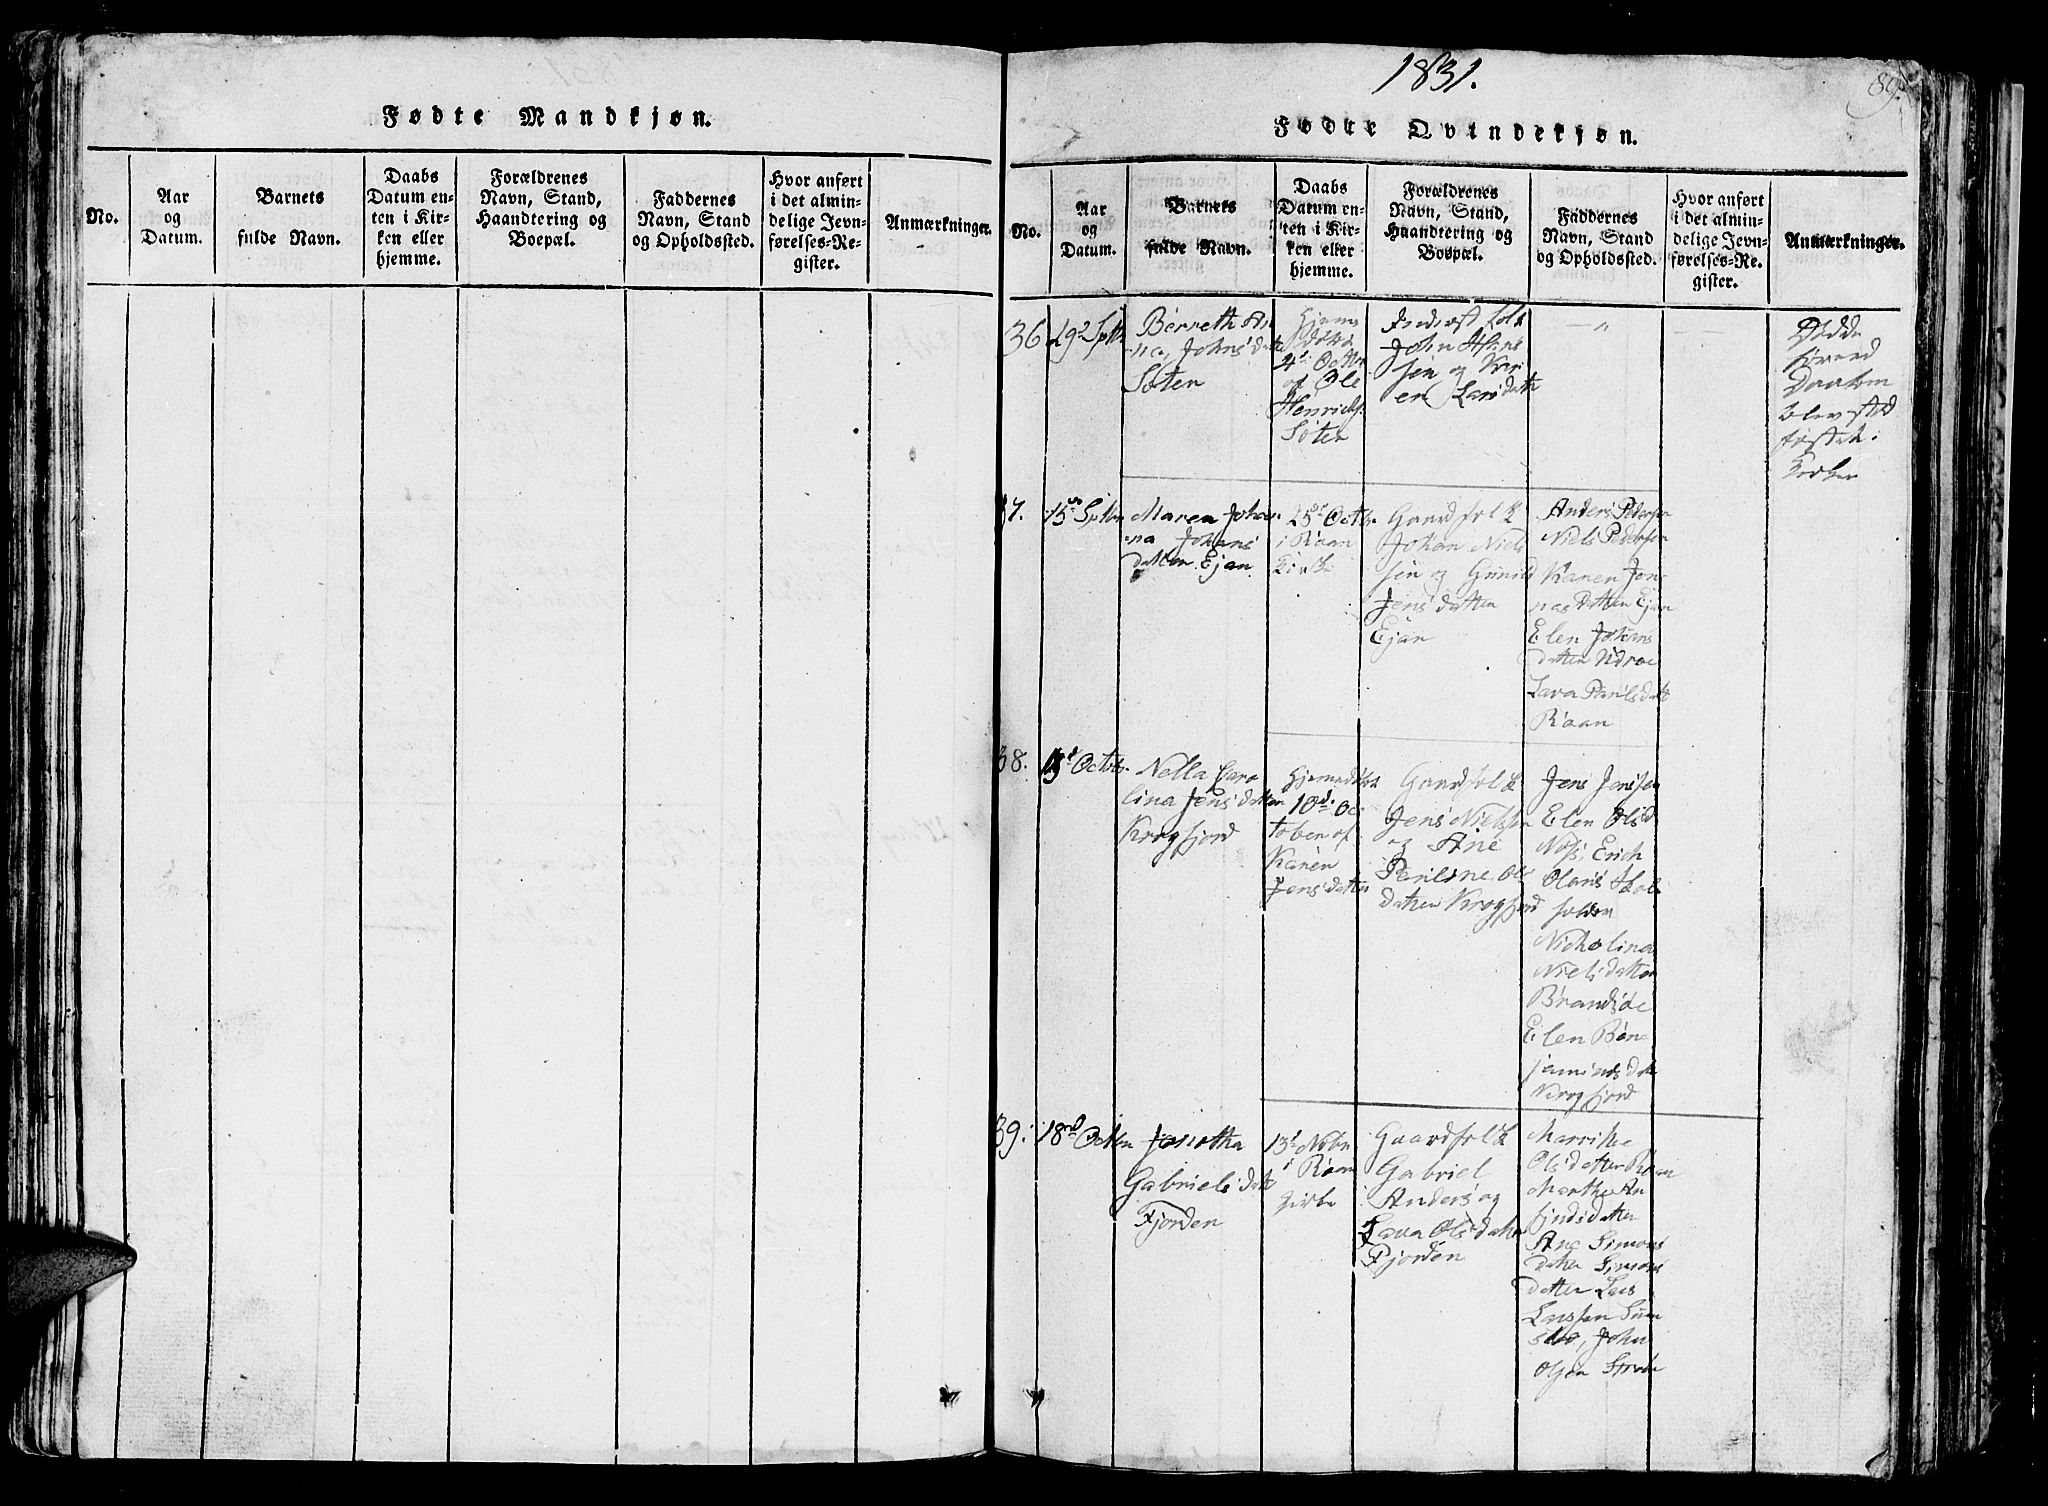 Fødte Mandkjøn.
No.
Aar
og
Datum.
Barnets
fulde Navn.
Daabs
Datum en-
ten i Kir-
ken eller
hjemme.
Forældrenes
Navn, Stand,
Haandtering og
Boepæl.
Faddernes
Navn, Stand
og Opholdssted.
Hvor anført
i det almin-
delige Jevn-
førelses-Re-
gister.
Anmærkninger.
1831.
89.
Fødte Qvindekjøn.
No.
Aar
og
Datum.
Barnets
fulde Navn.
Daabs
Datum en-
ten i Kir-
ken eller
hjemme.
Forældrenes
Navn, Stand,
Haandtering og
Boepæl.
Faddernes
Navn, Stand
og Opholdssted.
Hvor anført
i det almin-
delige Jevn-
førelses-Re-
gister.
Anmærkninger.
36
Johns
Søten
Hjeme
døbt
4de Octbr
af Ole
Henrichs:
Søten
Folk
John Hans
sen og Kar
en Larsdatt
Døde
førend
Daaben
blev stad
fæstet i
Kirken
37.
15de Sptbr
Maren Johan
na Johans
datter Ejan
25de Octbr.
i Raan
Kirke
Gaardfolk
Johan Niel
sen og Gunild
Jensdatter
Ejan
Anders Pedersen
Niels Pedersen
Karen Jon
nasdatter Ejan
Elen Johans
datter
Lava Paulsdat
Raan
38.
Octobr.
Nella Caro
lina Jensdatter
Krogfjord
Hjemedøbt
10de Oc
tober af
Karen
Jensdatter
Gaardfolk
Jens Nielssen
og Ane
Pauline Ols
datter Krogfjord
Jens Jenssen
Elen Olsd
Erich
Olans
Nicholina
Nielsdatter
Brandsøe
Elen Ben
jaminsdat
Krogfjord
39.
18de Octbr
Gabrielsdatt
Fjorden
13de Nobr
i Raan
Kirke
Gaardfolk
Gabriel
Anders og
Lava Olsdatter
Fjorden
Olsdatter Raan
Marthe An
findsdatter
Ane Simons
datter Simons
datter Lars
Larssen
John
Olsen